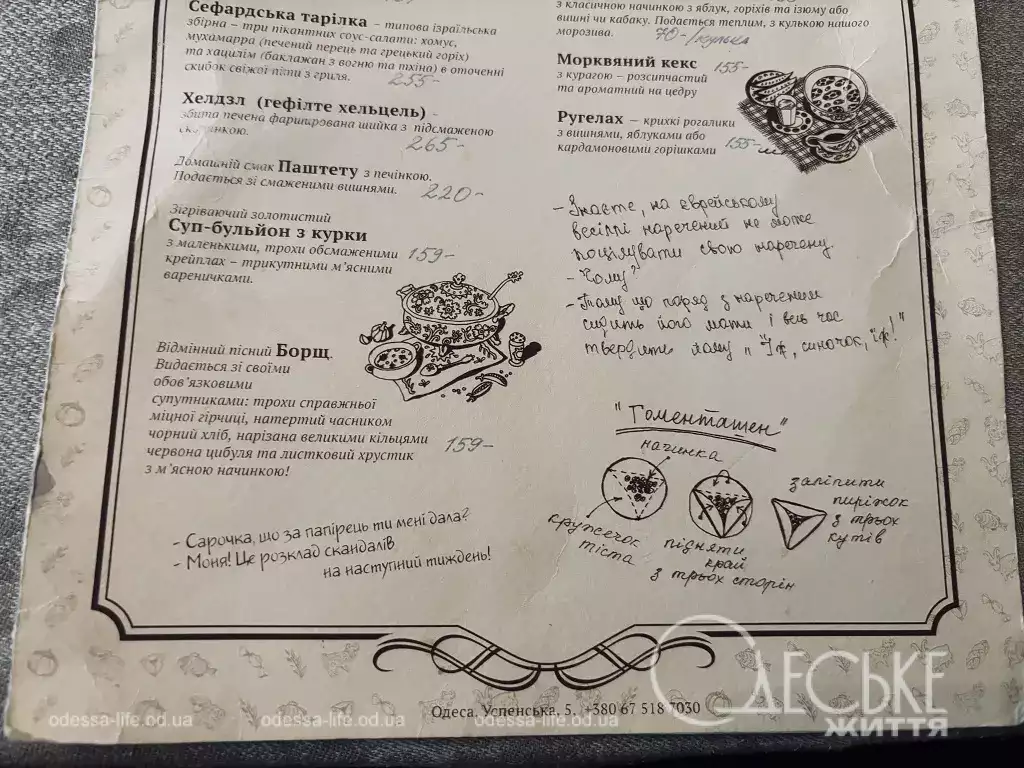 Сефардська тарілка – типова ізраїльська
збірна – три пікантних соус-салати: хомус,
мухамарра (печений перець та грецький горіх)
та хацилім (баклажан з вогню та тхіна) в оточенні
скибок свіжої піти з гриля. 255-
Хелдзл (гефілте хельцель) -
збита печена фарширована шийка з підсмаженою
скоринкою. 265-
Домашній смак Паштету з печінкою.
Подається зі смаженими вишнями. 220-
Зігріваючий золотистий
Суп-бульйон з курки
з маленькими, трохи обсмаженими 159-
крейплах – трикутними м'ясними
вареничками.
Відмінний пісний Борщ.
Видається зі своїми
обов'язковими
супутниками: трохи справжньої
міцної гірчиці, натертий часником
чорний хліб, нарізана великими кільцями 159-
червона цибуля та листковий хрустик
з м'ясною начинкою!
- Сарочка, що за папірець ти мені дала?
- Моня! Це розклад скандалів
на наступний тиждень!
з класичною начинкою з яблук, горіхів та ізюму або
вишні чи кабаку. Подається теплим, з кулькою нашого
морозива. 70-/кулька
Морквяний кекс 155-
з курагою – розсипчастий
та ароматний на цедру
Ругелах – крихкі рогалики
з вишнями, яблуками або
кардамоновими горішками 155-
- Знаєте, на єврейському
весіллі наречений не може
поцілувати свою наречену.
- Чому?
- Тому що поряд з нареченим
сидить його мати і весь час
твердить йому „Їж, синочок, їж!"
"Гоменташен"
начинка
кружечок
тіста
підняти
край
з трьох сторін
заліпити
пиріжок
з трьох
кутів
Одеса, Успенська, 5, +380 67 518 7030
Одеське
життя
odessa-life.od.ua odessa-life.od.ua odessa-life.od.ua odessa-life.od.ua